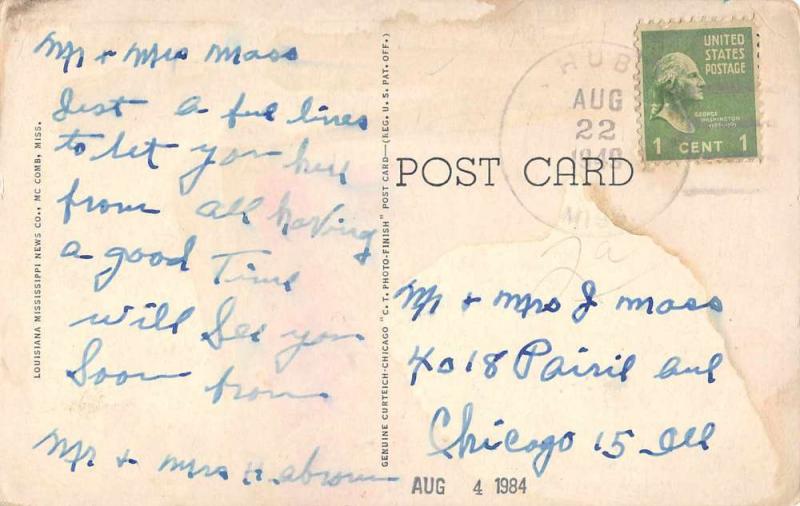 Mr + Mrs Mass
Just a few lines
to let you her
from all having
a good Time
will See you
Soon from
Mr + Mrs H. abrown
LOUISIANA MISSISSIPPI NEWS CO., MC COMB, MISS.
GENUINE CURTEICH-CHICAGO "C. T. PHOTO-FINISH" POST CARD—(REG. U. S. PAT. OFF.)
HUB
AUG
22
MISS
UNITED
STATES
POSTAGE
GEORGE
WASHINGTON
1 CENT 1
POST CARD
Mr + Mrs J Mass
4018 Pairil aul
Chicago 15 Ill
AUG 4 1984